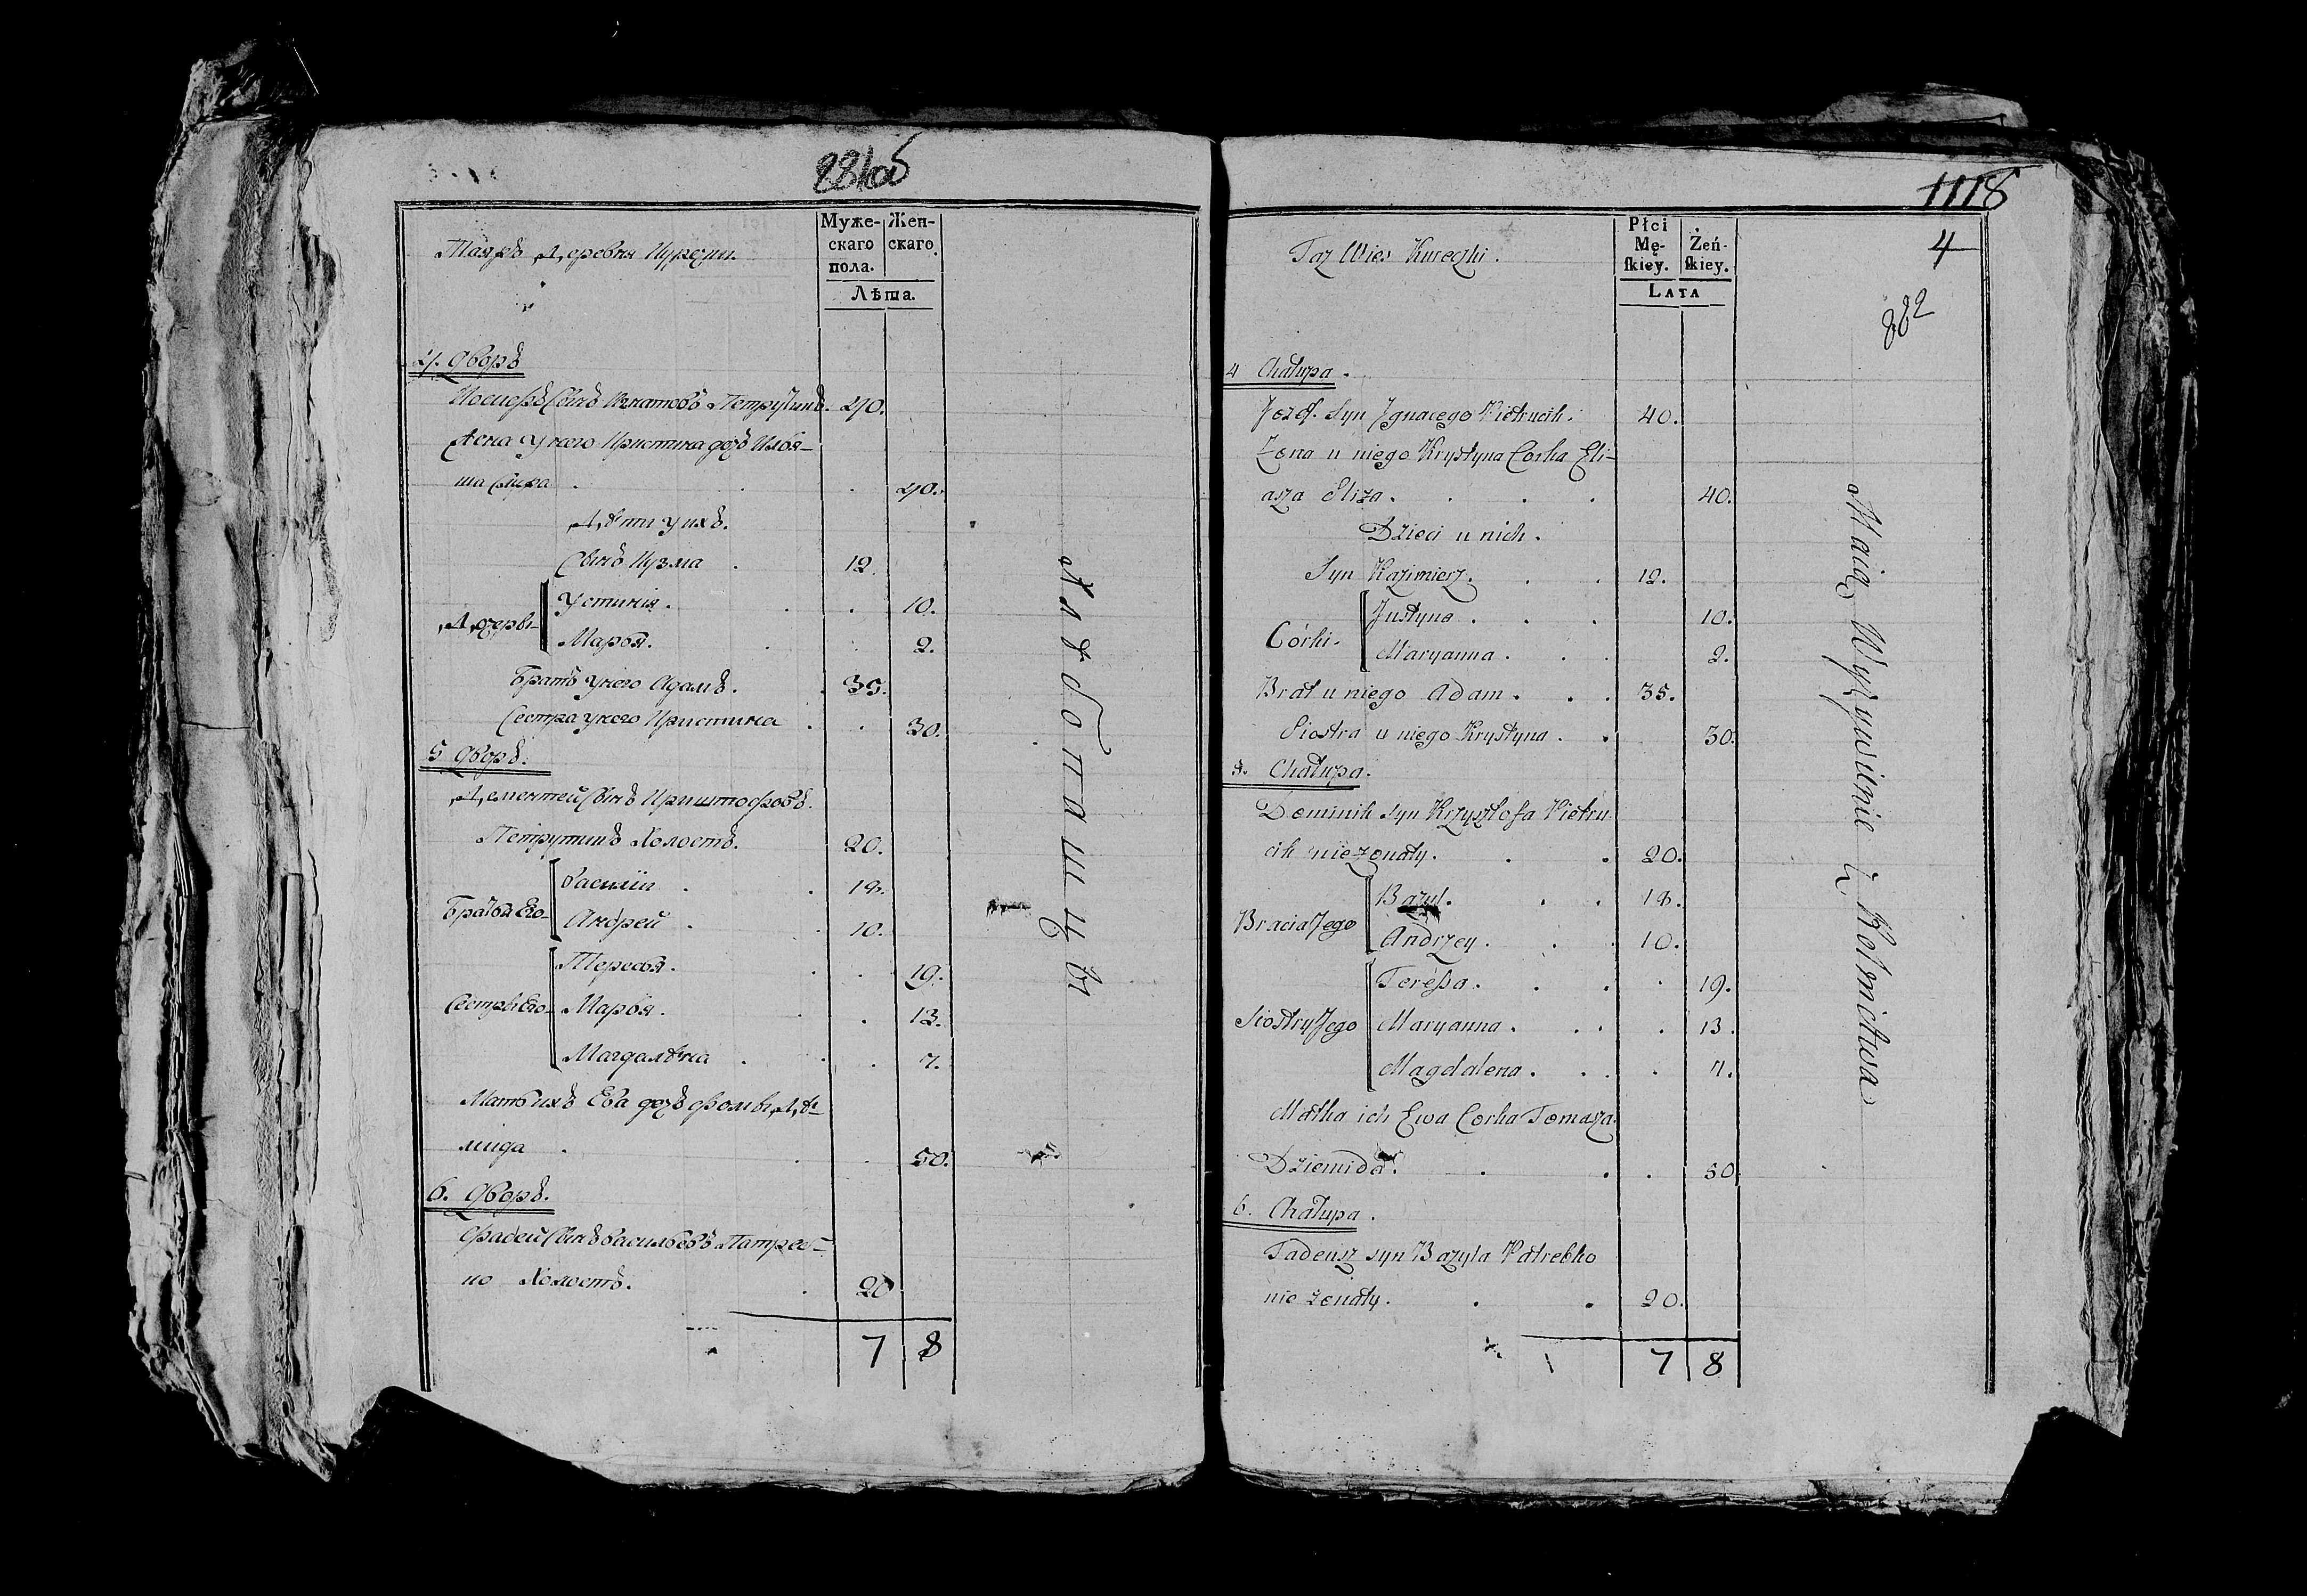 Муже-
скаго
пола.
Жен-
скаго
Лѣта.
Таяжъ Деревня Куречки.
4. Дворъ
Иосифъ Сынъ Игнатовъ Петручикъ. 40.
Жена у него Кристина дочь Илья-
ша . . . 40.
Дѣти у ихъ.
Сынъ Кузма . 12.
Дочери
Устинія. . . 10.
Марья. . . 2.
Братъ у него Адамъ. . 35.
Сестра у него Кристина . . 30.
5 Дворъ.
Дементей Сынъ Криштофовъ
Петрутикъ Холостъ. 20.
Братья Его
Василій . . 18.
Андрей . . 10.
Сестры Его
Тереся. . . 19.
Марья. . . 13.
Магдалѣна . . . 7.
Мать ихъ Ева дочь Фомы Дѣ-
мида . . . 50.
6. Дворъ.
Фадей Сынъ Васильевъ Патреб-
ко Холостъ. . 20
7 8
Хлѣбопашцы
1118
4
882
Płci
Mę-
ſkiey.
Żeń-
ſkiey.
LATA
Taż Wieś Kureczki.
4 Chałupa.
Jozef Syn Jgnacego Pietrucik. 40.
Żona u niego Krystyna Corka Eli-
asza Eliza. . . . 40.
Dzieci u nich.
Syn Kazimierz. . . 12.
Córki.
Justyna . . . 10.
Maryanna . . . 2.
Brat u niego Adam . . . 35.
Siostra u niego Krystyna . . 30.
5. Chałupa.
Dominik syn Krzysztofa Pietru
cik nieżonaty. . . 20.
Bracia Jego
Bazyl. . . 18.
Andrzey. . . 10.
Siostry Jego
Tereſsa. . . . 19.
Maryanna. . . . 13.
Magdalena. . . . 7.
Matka ich Ewa Corka Tomasza
Dziemida. . . . 50.
6. Chałupa.
Tadeusz syn Bazyla Patrebko
nie żonaty. . . 20.
7 8
Maią Wyżywienie z Rolnictwa